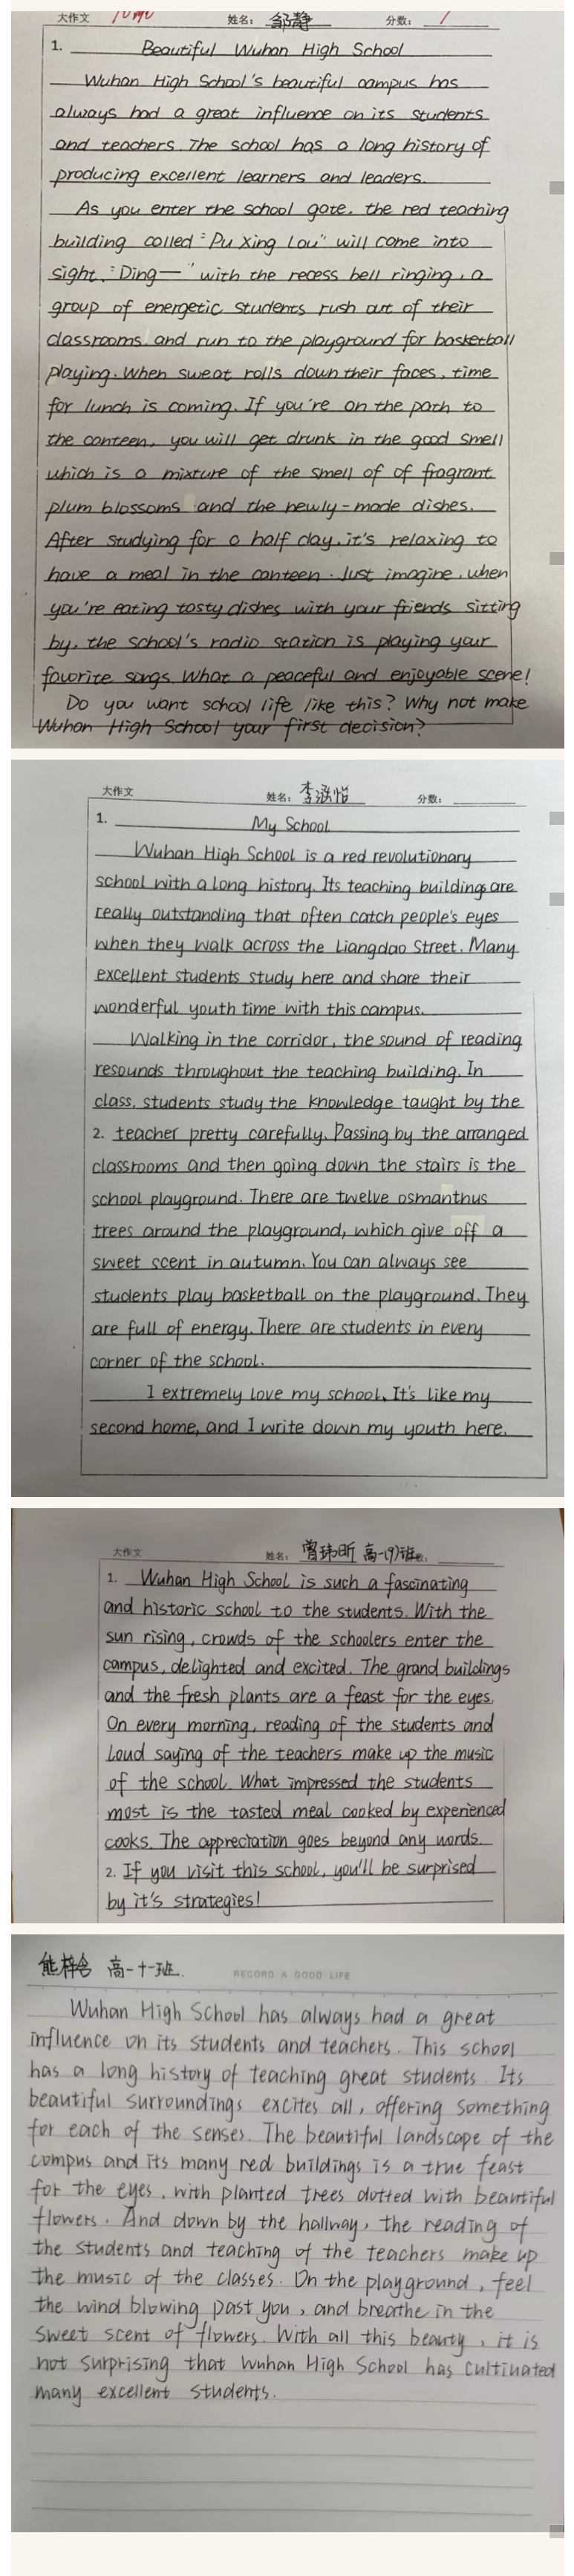 大作文 姓名： 邹静 分数：
1. Beautiful Wuhan High School
Wuhan High School's beautiful campus has
always had a great influence on its students
and teachers. The school has a long history of
producing excellent learners and leaders.
As you enter the school gate, the red teaching
building called "Pu Xing Lou" will come into
sight. "Ding—" with the recess bell ringing, a
group of energetic students rush out of their
classrooms and run to the playground for basketball
playing. When sweat rolls down their faces, time
for lunch is coming. If you're on the path to
the canteen, you will get drunk in the good smell
which is a mixture of the smell of of fragrant
plum blossoms and the newly-made dishes.
After studying for a half day, it's relaxing to
have a meal in the canteen. Just imagine, when
you're eating tasty dishes with your friends sitting
by, the school's radio station is playing your
favorite songs. What a peaceful and enjoyable scene!
Do you want school life like this? Why not make
Wuhan High School your first decision?
大作文 姓名： 李涵怡 分数：
1. My School
Wuhan High School is a red revolutionary
school with a long history. Its teaching buildings are
really outstanding that often catch people's eyes
when they walk across the Liangdao Street. Many
excellent students study here and share their
wonderful youth time with this campus.
Walking in the corridor, the sound of reading
resounds throughout the teaching building. In
class, students study the knowledge taught by the
2. teacher pretty carefully. Passing by the arranged
classrooms and then going down the stairs is the
school playground. There are twelve osmanthus
trees around the playground, which give off a
sweet scent in autumn. You can always see
students play basketball on the playground. They
are full of energy. There are students in every
corner of the school.
I extremely love my school. It's like my
second home, and I write down my youth here.
大作文 姓名： 曾玮昕 高一(9)班
1. Wuhan High School is such a fascinating
and historic school to the students. With the
sun rising, crowds of the schoolers enter the
campus, delighted and excited. The grand buildings
and the fresh plants are a feast for the eyes.
On every morning, reading of the students and
loud saying of the teachers make up the music
of the school. What impressed the students
most is the tasted meal cooked by experienced
cooks. The appreciation goes beyond any words.
2. If you visit this school, you'll be surprised
by it's strategies!
熊梓含 高一十一班
RECORD A GOOD LIFE
Wuhan High School has always had a great
influence on its students and teachers. This school
has a long history of teaching great students. Its
beautiful surroundings excites all, offering something
for each of the senses. The beautiful landscape of the
campus and its many red buildings is a true feast
for the eyes, with planted trees dotted with beautiful
flowers. And down by the hallway, the reading of
the students and teaching of the teachers make up
the music of the classes. On the playground, feel
the wind blowing past you, and breathe in the
sweet scent of flowers. With all this beauty, it is
not surprising that Wuhan High School has cultivated
many excellent students.